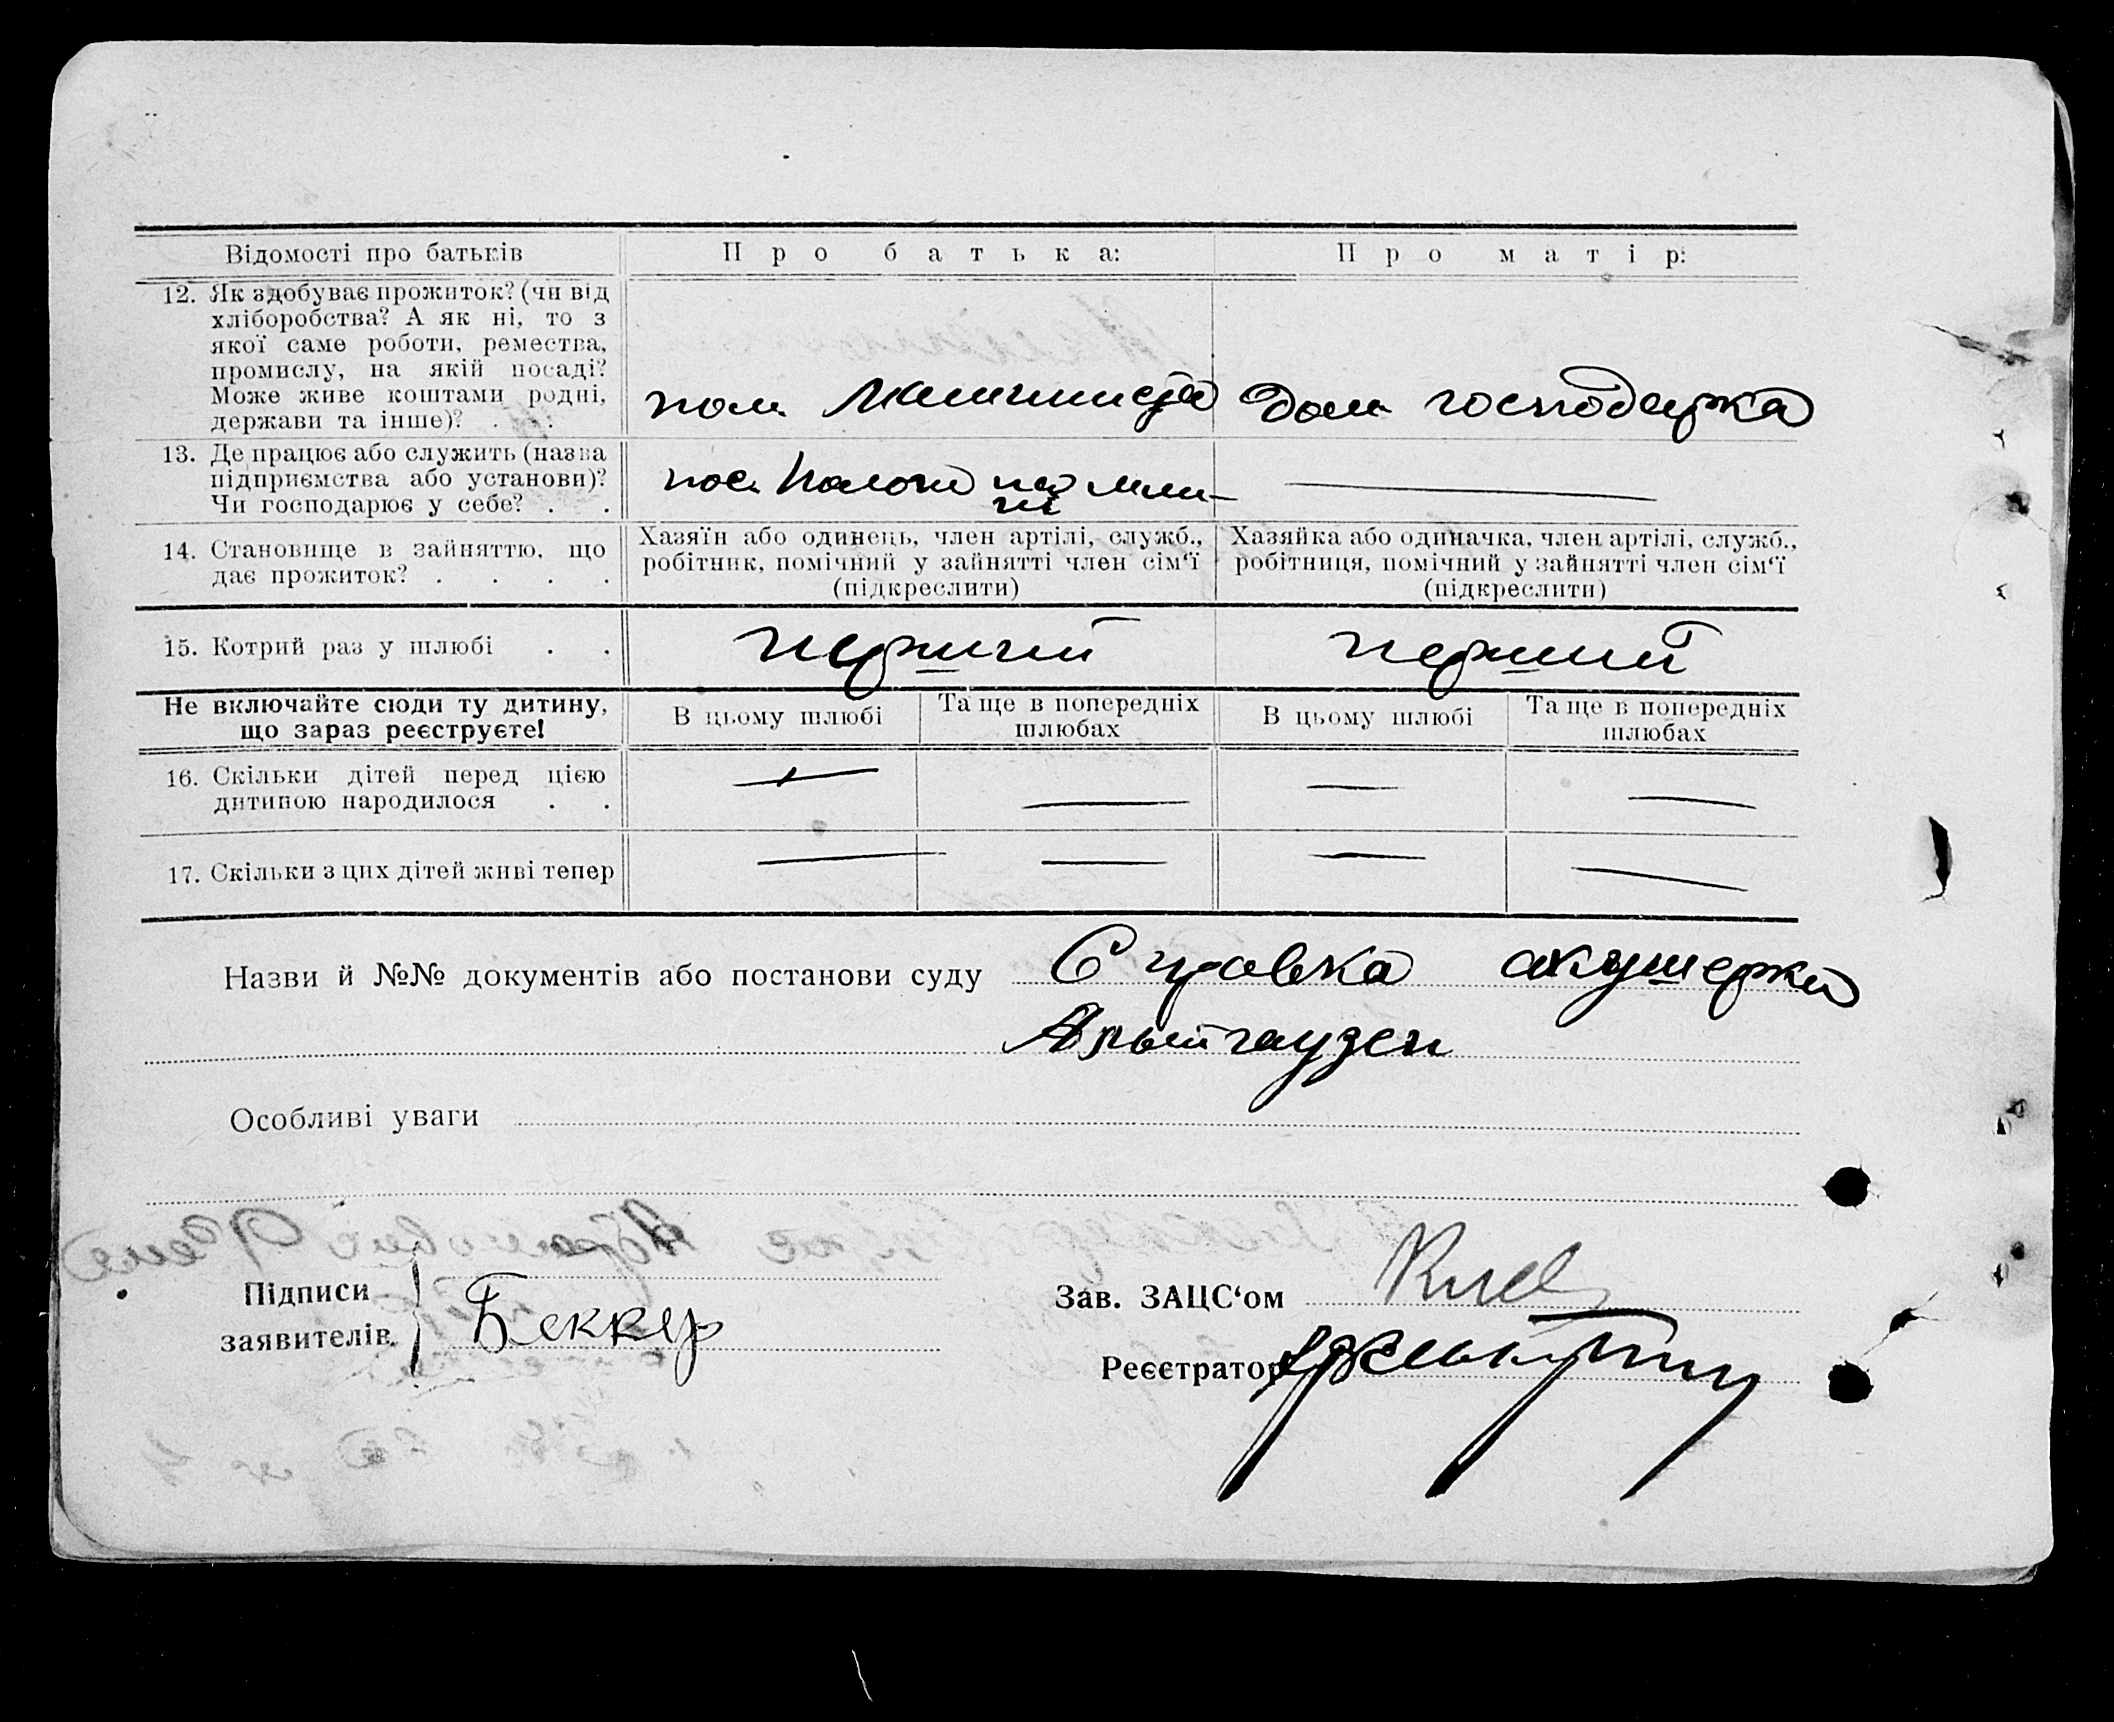 Відомості про батьків
Про батька:
Про матір:
12. Як здобуває прожиток? (чи від
хліборобства? А як ні, то з
якої саме роботи, ремества,
промислу, на якій посаді?
Може живе коштами родні,
держави та інше)? . .
пом. машиниста
Дом. господарка
13. Де працює або служить (назва
підприємства або установи)?
Чи господарює у себе? . .
пос. Пологи на мли-
ні
14. Становище в зайняттю, що
дає прожиток? . . . .
Хазяїн або одинець, член артілі, служб.,
робітник, помічний у зайнятті член сім‘ї
(підкреслити)
Хазяйка або одиначка, член артілі, служб.,
робітниця, помічний у зайнятті член сім‘ї
(підкреслити)
15. Котрий раз у шлюбі . .
перший
перший
Не включайте сюди ту дитину,
що зараз реєструєте!
В цьому шлюбі
Та ще в попередніх
шлюбах
В цьому шлюбі
Та ще в попередніх
шлюбах
16. Скільки дітей перед цією
дитиною народилося . .
17. Скільки з цих дітей живі тепер
Назви й №№ документів або постанови суду Справка акушерки
Особливі уваги
Підписи
заявителів. Беккер
Зав. ЗАЦС‘ом
Реєстратор